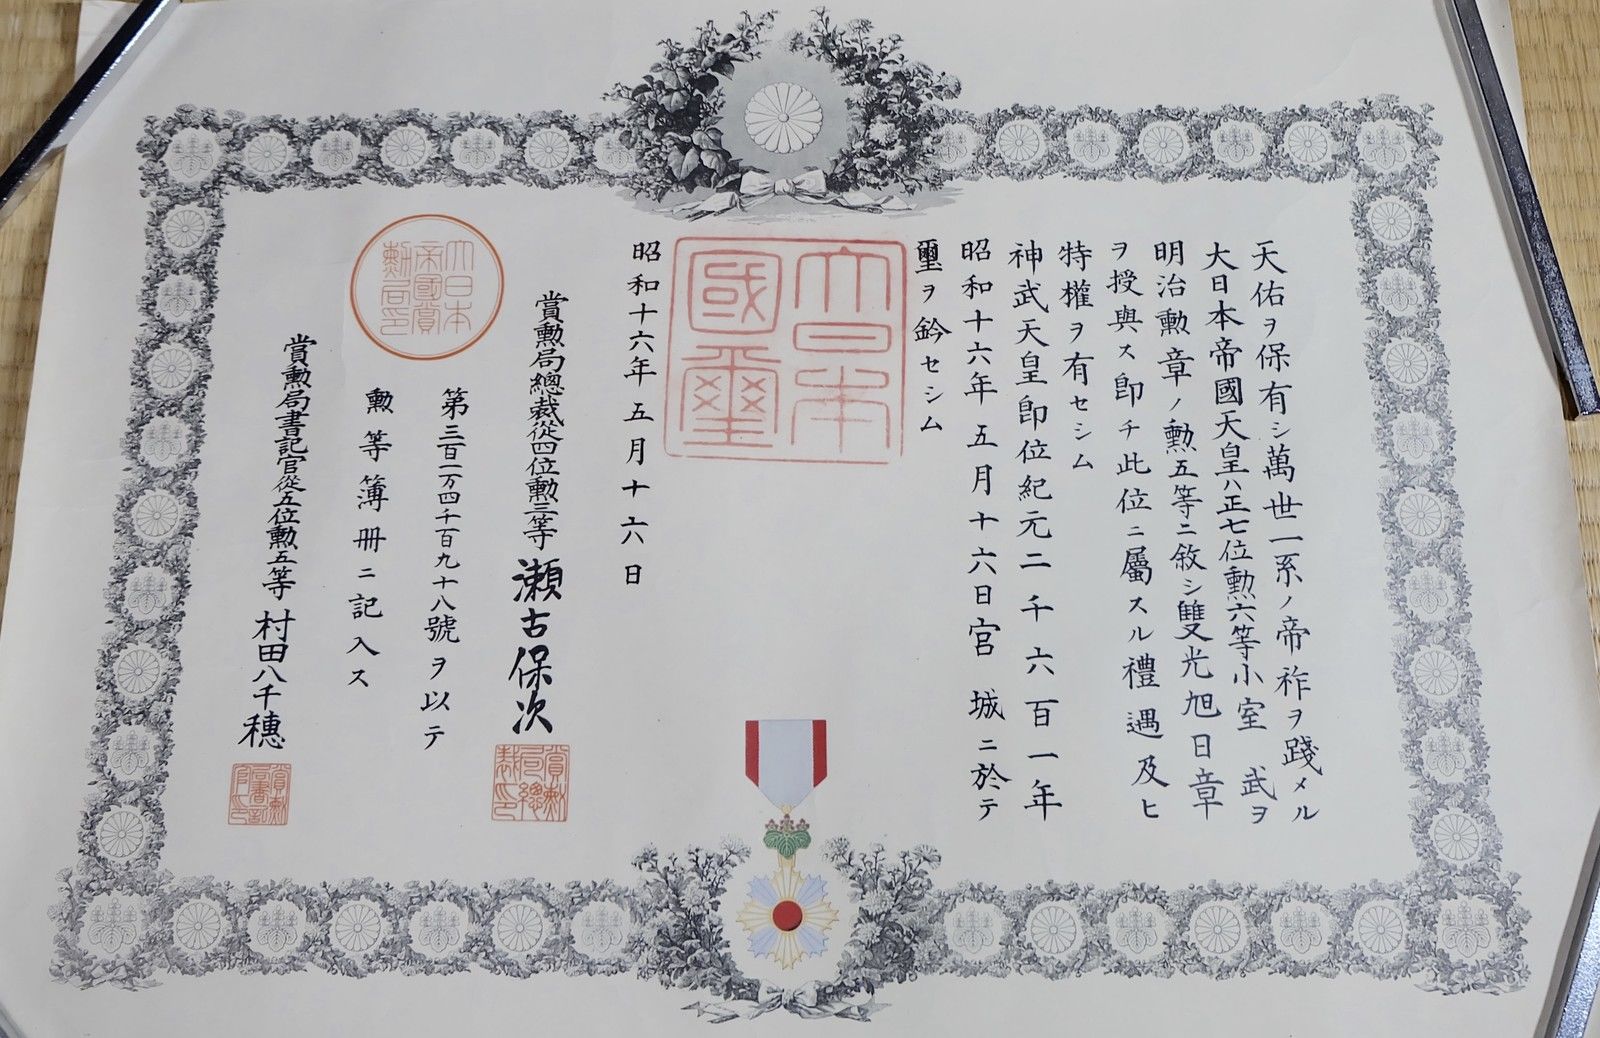 天佑ヲ保有シ萬世一系ノ帝祚ヲ踐メル
大日本帝國天皇ハ正七位勲六等小室武ヲ
明治勲章ノ勲五等ニ敘シ雙光旭日章
ヲ授與ス卽チ此位ニ屬スル禮遇及ヒ
特權ヲ有セシム
神武天皇卽位紀元二千六百一年
昭和十六年五月十六日宮城ニ於テ
璽ヲ鈐セシム
大日本
國璽
昭和十六年五月十六日
賞勲局總裁從四位勲三等瀬古保次
賞勲局總裁印
大日本
帝國賞
勲局印
第三百一万四千百九十八號ヲ以テ
勲等簿冊ニ記入ス
賞勲局書記官從五位勲五等村田八千穗
賞勲局書記官印